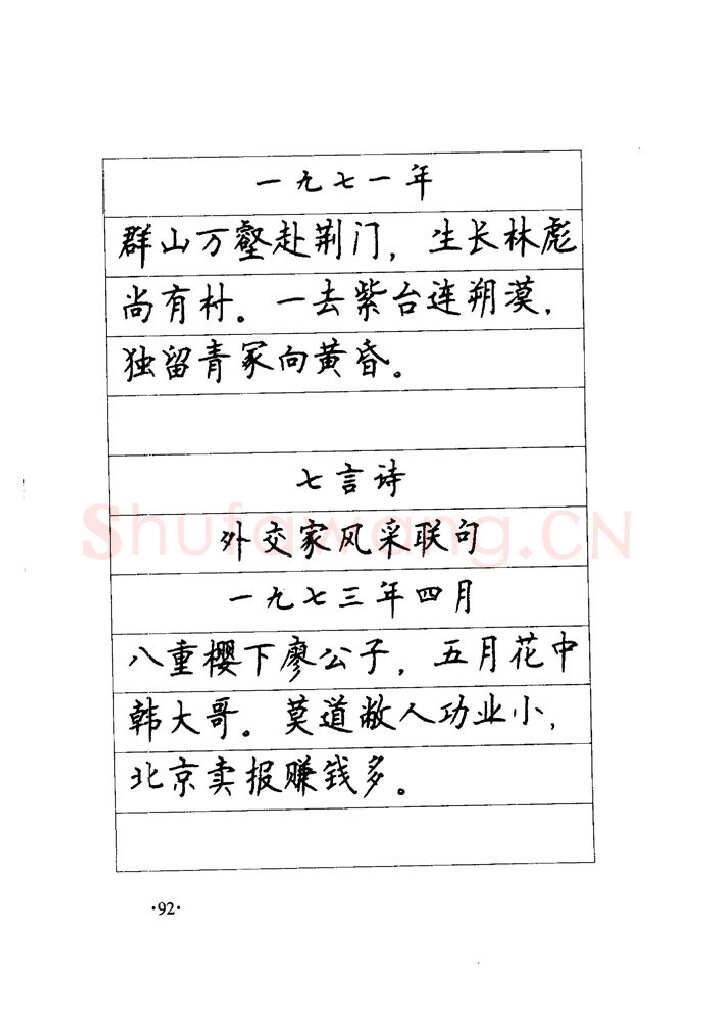 一九七一年
群山万壑赴荆门，生长林彪
尚有村。一去紫台连朔漠，
独留青冢向黄昏。
七言诗
外交家风采联句
Shufawang.CN
一九七三年四月
八重樱下廖公子，五月花中
韩大哥。莫道敝人功业小，
北京卖报赚钱多。
·92·